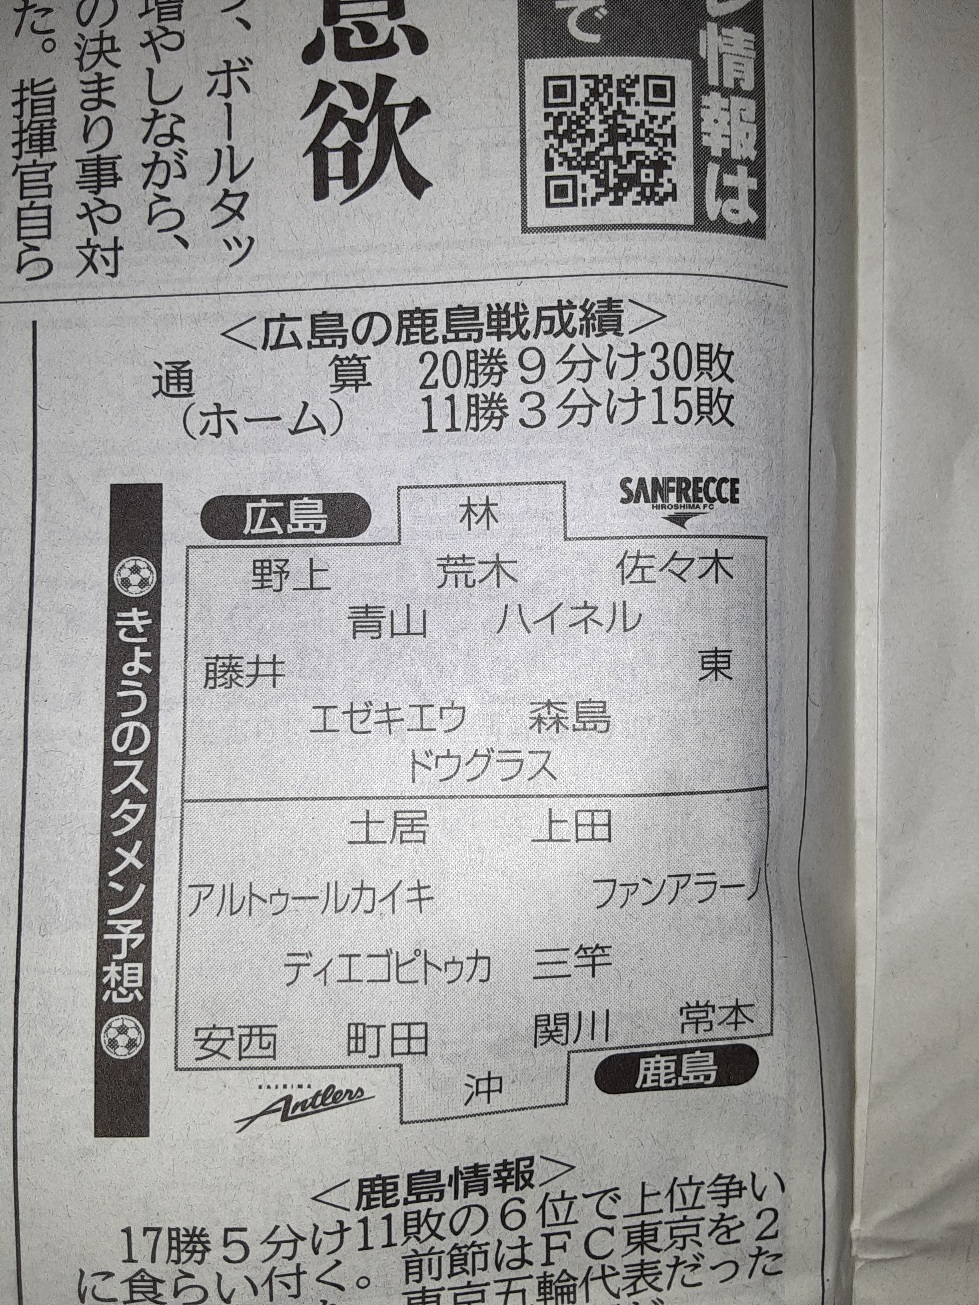 情報は
で
意欲
、ボールタッ
増やしながら、
の決まり事や対
た。指揮官自ら
＜広島の鹿島戦成績＞
通算 20勝9分け30敗
（ホーム） 11勝3分け15敗
きょうのスタメン予想
広島
SANFRECCE
HIROSHIMA FC
林
野上 荒木 佐々木
青山 ハイネル
藤井 東
エゼキエウ 森島
ドウグラス
土居 上田
アルトゥールカイキ ファンアラーノ
ディエゴピトゥカ 三竿
安西 町田 関川 常本
沖
鹿島
KASHIMA
Antlers
＜鹿島情報＞
17勝5分け11敗の6位で上位争い
に食らい付く。前節はFC東京を2
東京五輪代表だった